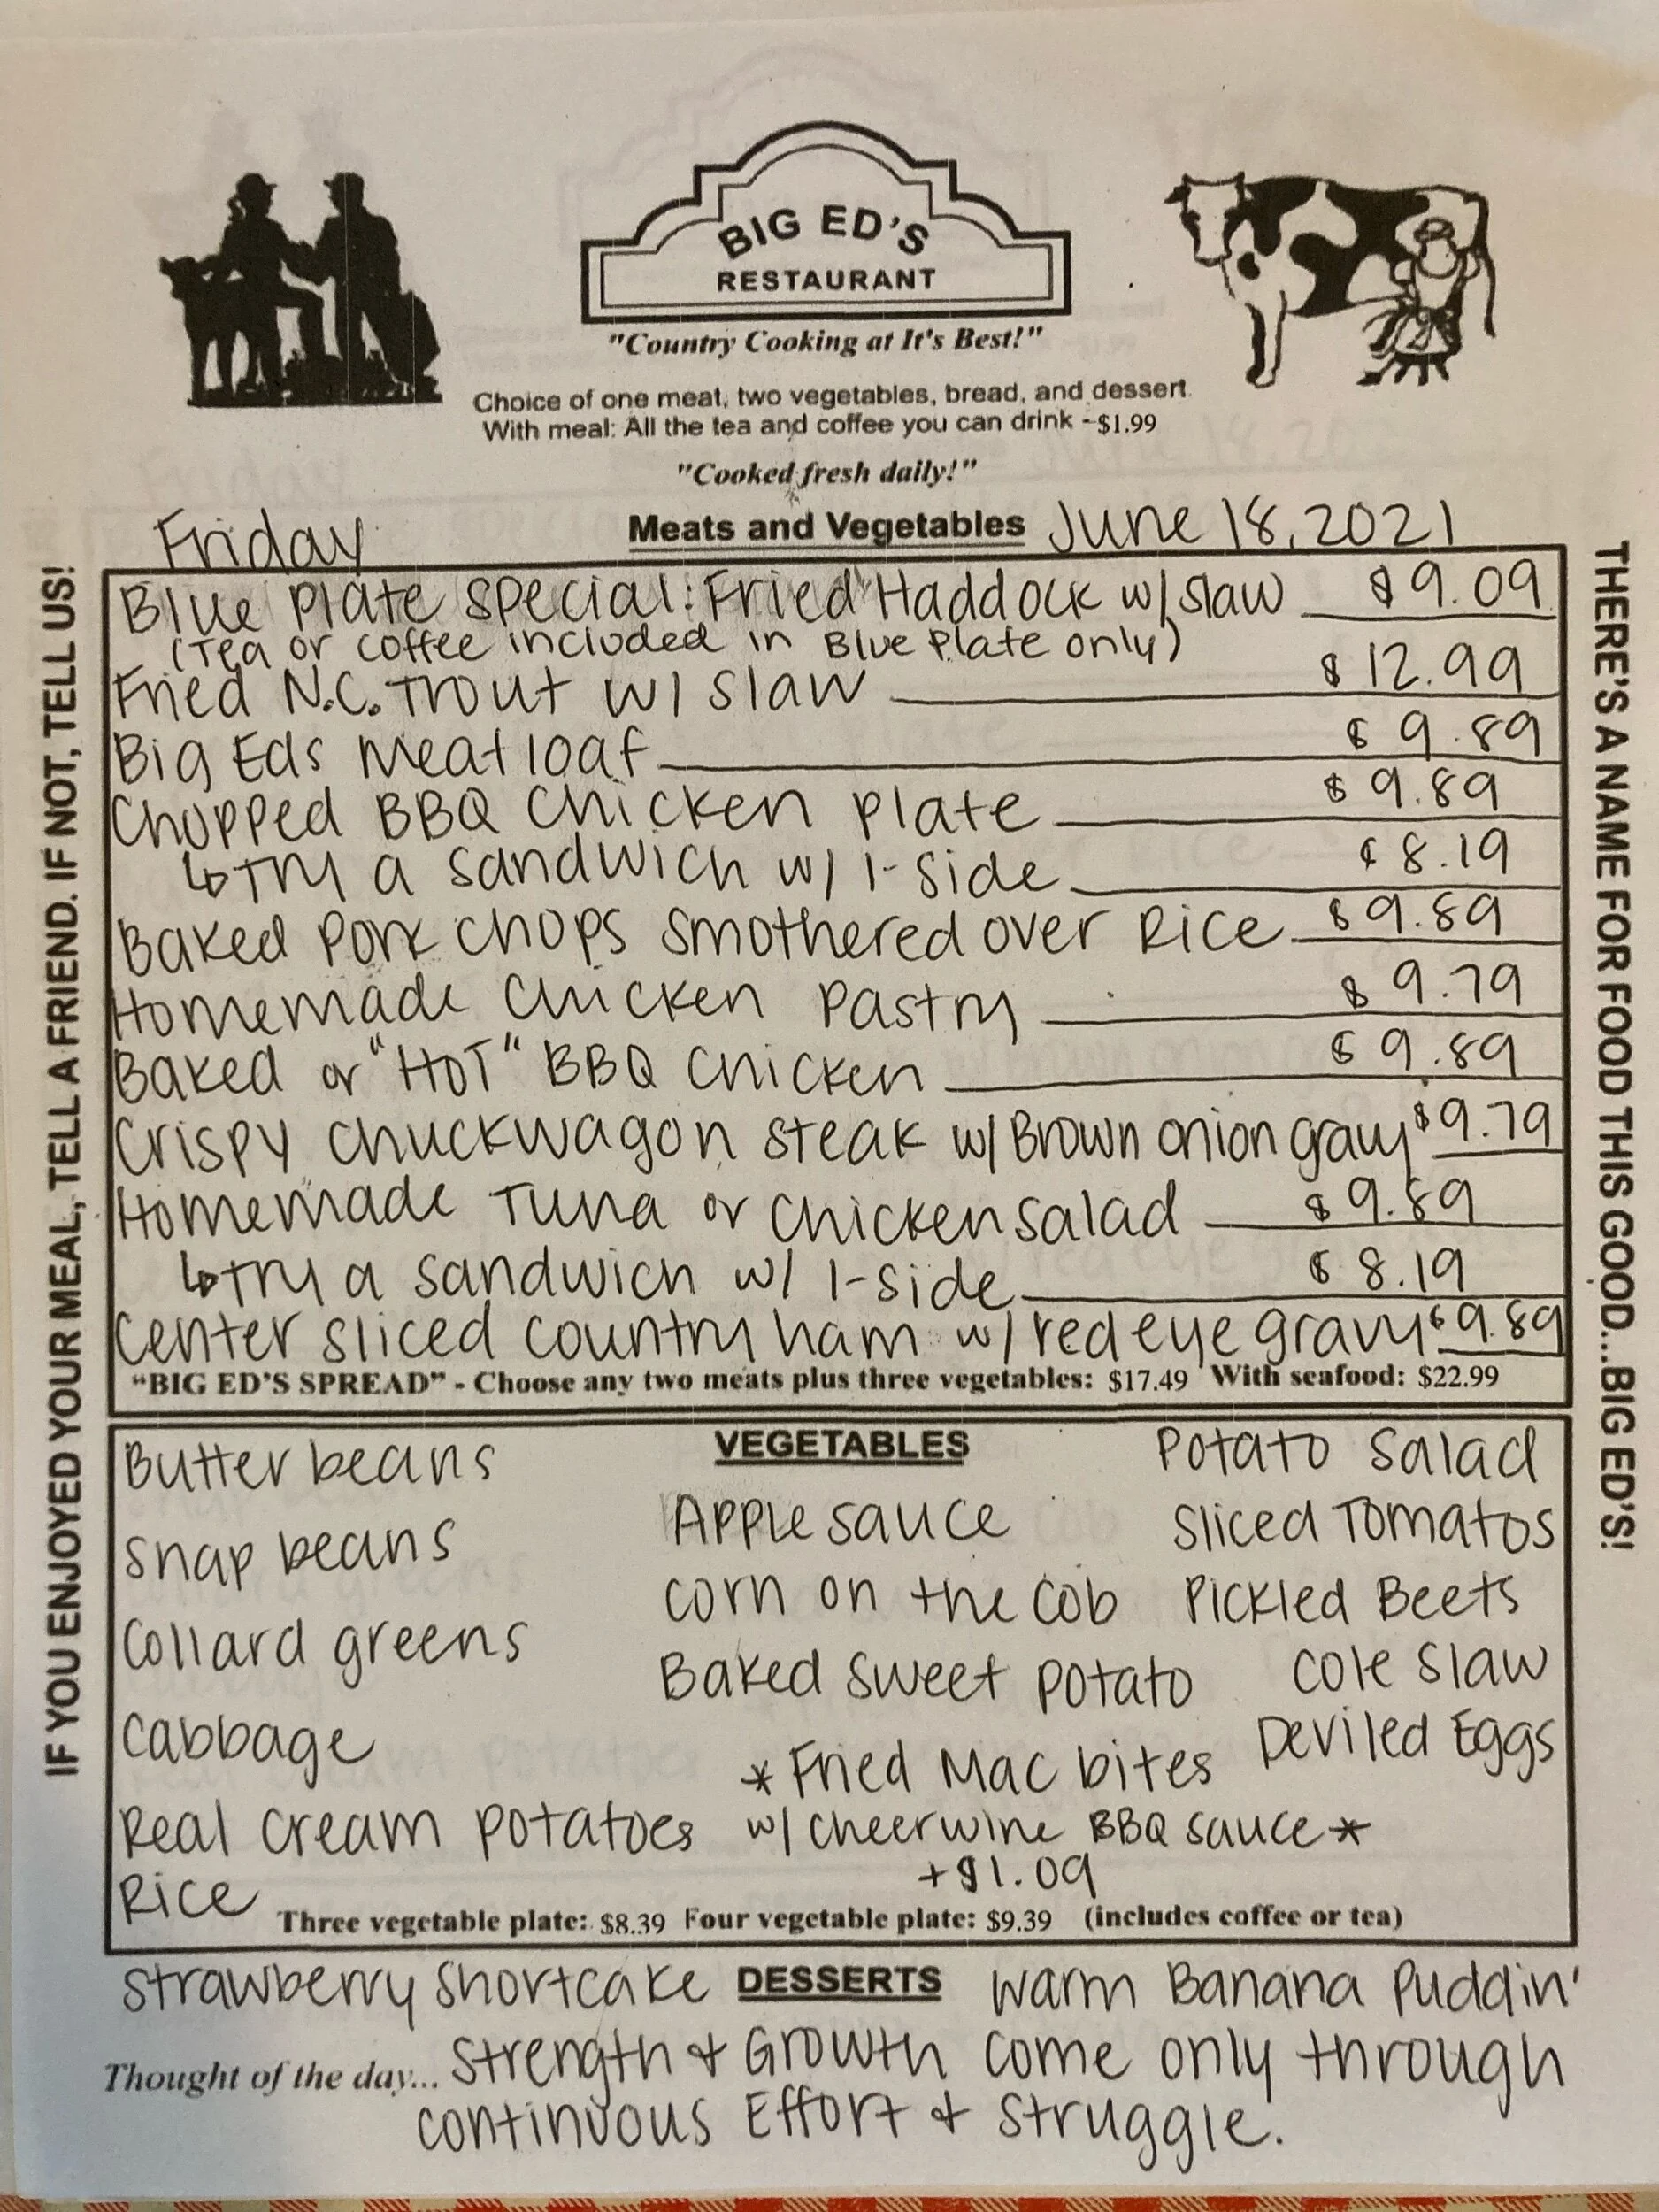 BIG ED'S
RESTAURANT
"Country Cooking at It's Best!"
Choice of one meat, two vegetables, bread, and dessert
With meal: All the tea and coffee you can drink -$1.99
"Cooked fresh daily!"
Friday Meats and Vegetables June 18, 2021
Blue Plate Special: Fried Haddock w/ slaw $9.09
(Tea or coffee included in Blue Plate only)
Fried N.C. Trout w/ slaw $12.99
Big Eds Meatloaf $9.89
Chopped BBQ Chicken Plate $9.89
↳Try a sandwich w/ 1-side $8.19
Baked Pork Chops Smothered over Rice $9.89
Homemade Chicken Pastry $9.79
Baked or "HOT" BBQ Chicken $9.89
Crispy Chuckwagon Steak w/ Brown onion gravy $9.79
Homemade Tuna or Chicken salad $9.89
↳Try a sandwich w/ 1-side $8.19
Center sliced country ham w/ red eye gravy $9.89
"BIG ED'S SPREAD" - Choose any two meats plus three vegetables: $17.49 With seafood: $22.99
VEGETABLES
Butter beans
Snap beans
Collard greens
Cabbage
Real Cream Potatoes
Rice
Apple sauce
Corn on the Cob
Baked Sweet Potato
*Fried Mac bites
w/ Cheerwine BBQ sauce*
+$1.09
Potato Salad
Sliced Tomatos
Pickled Beets
Cole Slaw
Deviled Eggs
Three vegetable plate: $8.39 Four vegetable plate: $9.39 (includes coffee or tea)
Strawberry Shortcake DESSERTS Warm Banana Puddin'
Thought of the day... Strength & Growth come only through
continuous Effort & Struggle.
IF YOU ENJOYED YOUR MEAL, TELL A FRIEND. IF NOT, TELL US!
THERE'S A NAME FOR FOOD THIS GOOD...BIG ED'S!